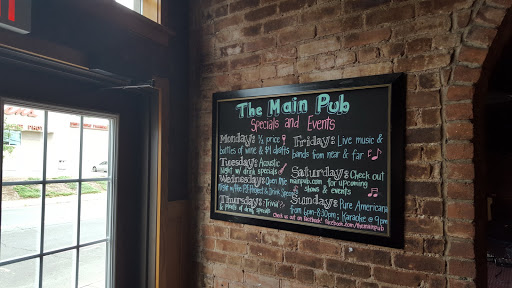 The Main Pub
Specials and Events
Monday: ½ price
bottles of wine & $1 drafts
Tuesday: Acoustic
Night w/ drink specials
Wednesday: Open Mic
Night w/ the PJ Project & Drink Specials
Thursday: Trivia!!
& plenty of drink specials
Friday: Live music &
bands from near & far
Saturday: Check out
mainpub.com for upcoming
shows & events
Sunday: Pure Americana
from 6pm-8:30pm; Karaoke @ 9pm
Check us out on Facebook! facebook.com/themainpub